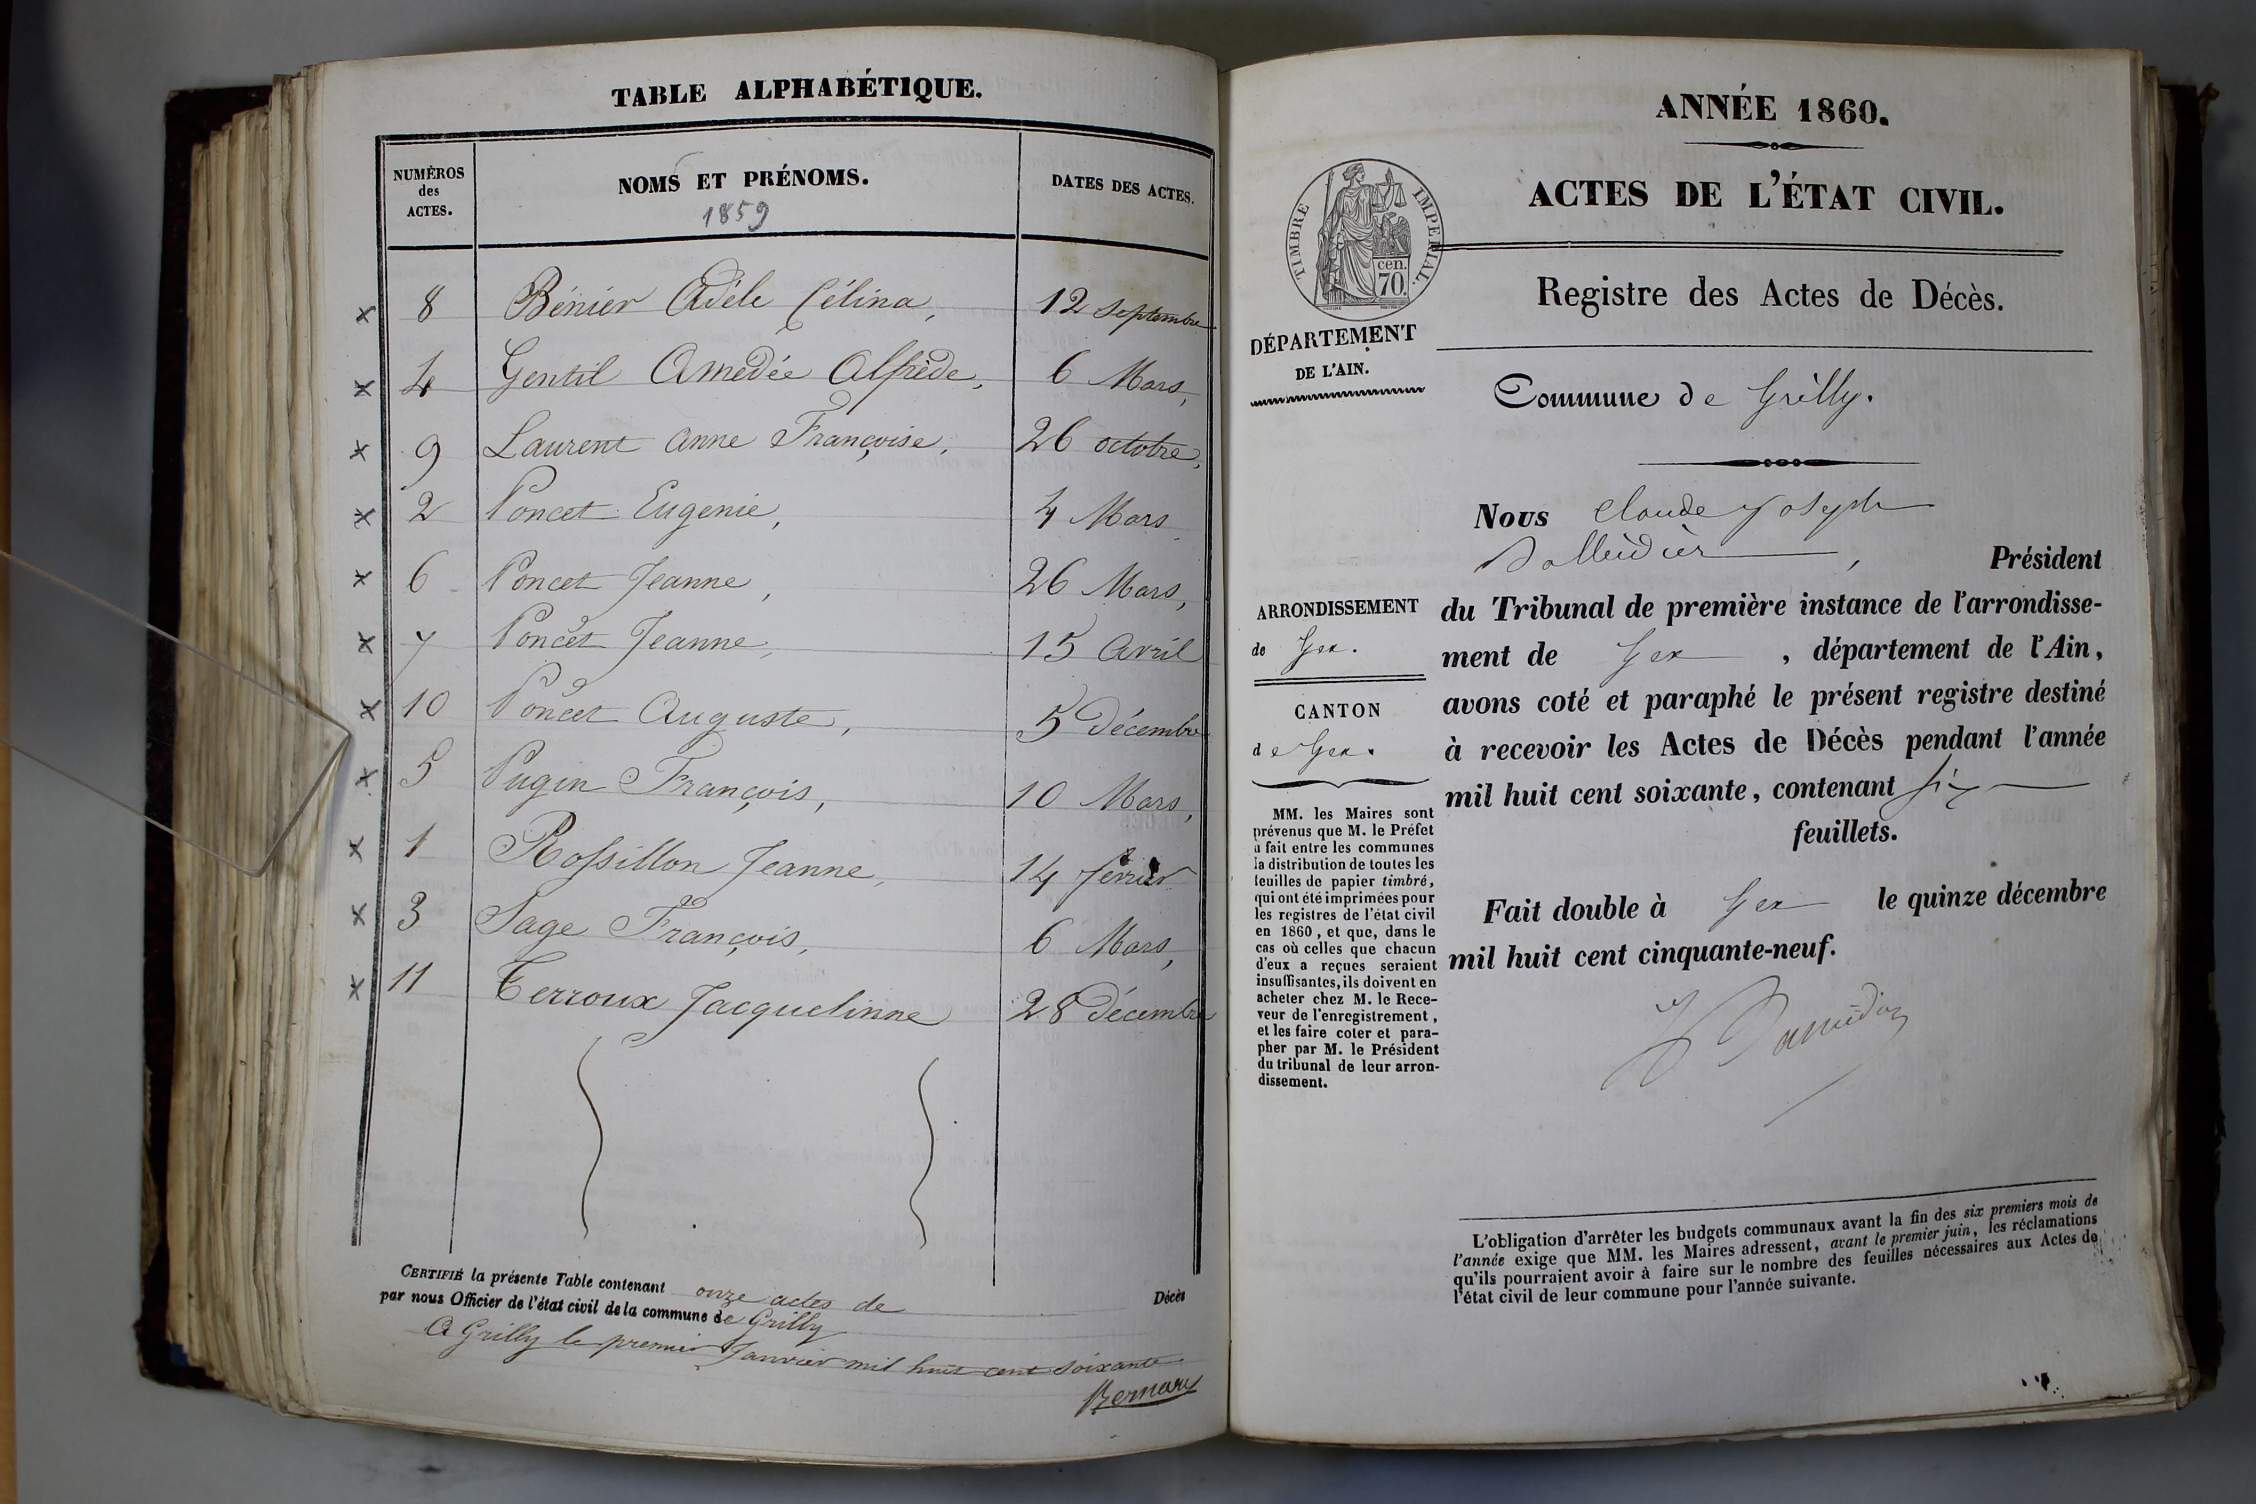 TABLE ALPHABÉTIQUE.
NUMÉROS des ACTES.
NOMS ET PRÉNOMS.
1859
DATES DES ACTES.
8 Bénier Adèle Célina, 12 Septembre
4 Gentil Amedée Alfrède, 6 Mars,
9 Laurent Anne Françoise, 26 octobre,
2 Poncet Eugenie, 4 Mars
6 Poncet Jeanne, 26 Mars,
7 Poncet Jeanne, 15 Avril
10 Poncet Auguste, 5 Décembre
5 Pugin François, 10 Mars,
1 Rossillon Jeanne, 14 février
3 Sage François, 6 Mars,
11 Terroux Jacquelinne 28 Décembre
CERTIFIÉ la présente Table contenant onze actes de Décès
par nous Officier de l'état civil de la commune de Grilly
A Grilly le premier Janvier mil huit cent soixante
Bernard
ANNÉE 1860.
ACTES DE L'ÉTAT CIVIL.
TIMBRE IMPERIAL.
cen.
70.
Registre des Actes de Décès.
DÉPARTEMENT
DE L'AIN.
Commune de Grilly.
Nous Claude Joseph
, Président
ARRONDISSEMENT
de Gex.
CANTON
de Gex.
du Tribunal de première instance de l'arrondisse-
ment de Gex , département de l'Ain,
avons coté et paraphé le présent registre destiné
à recevoir les Actes de Décès pendant l'année
mil huit cent soixante, contenant six
feuillets.
Fait double à Gex le quinze décembre
mil huit cent cinquante-neuf.
MM. les Maires sont
prévenus que M. le Préfet
a fait entre les communes
la distribution de toutes les
feuilles de papier timbré,
qui ont été imprimées pour
les registres de l'état civil
en 1860, et que, dans le
cas où celles que chacun
d'eux a reçues seraient
insuffisantes, ils doivent en
acheter chez M. le Rece-
veur de l'enregistrement,
et les faire coter et para-
pher par M. le Président
du tribunal de leur arron-
dissement.
L'obligation d'arrêter les budgets communaux avant la fin des six premiers mois de
l'année exige que MM. les Maires adressent, avant le premier juin, les réclamations
qu'ils pourraient avoir à faire sur le nombre des feuilles nécessaires aux Actes de
l'état civil de leur commune pour l'année suivante.